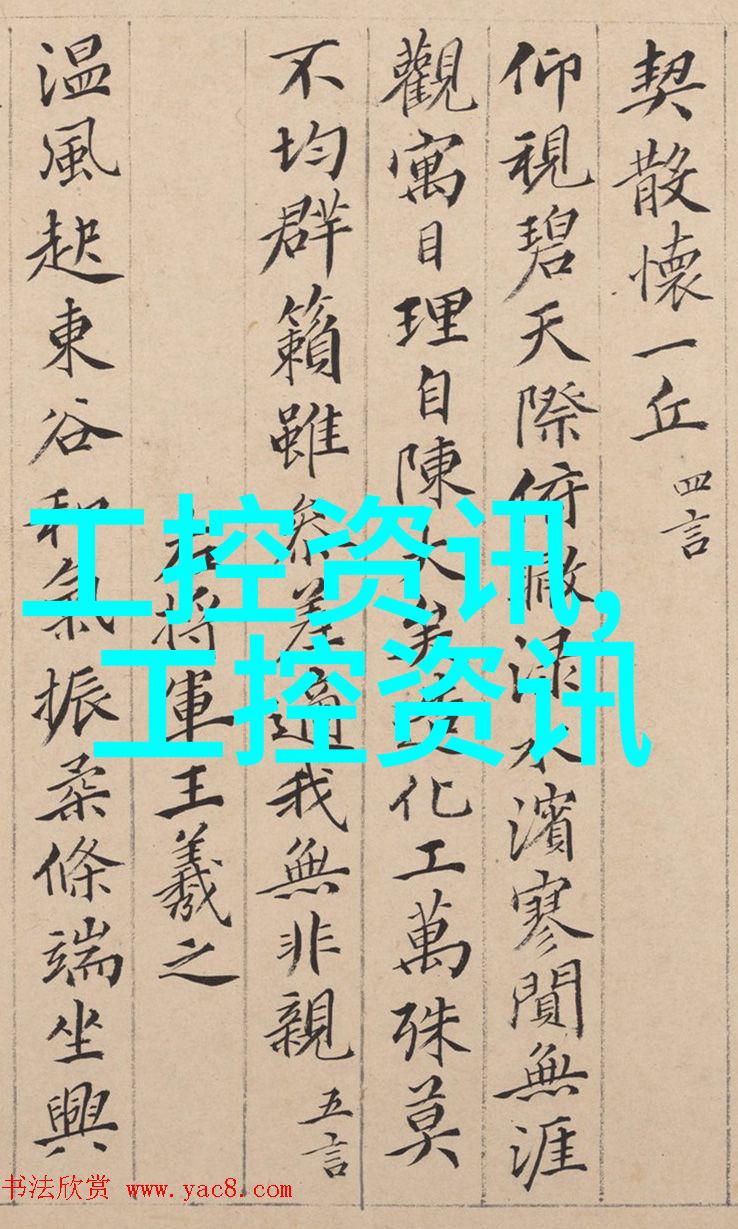 契散懷一丘 四言
仰視碧天際俯淥水濱寥閴無涯
觀寓目理自陳大矣造化工萬殊莫
不均群籟雖參差適我無非親 五言
右將軍王羲之
温風起東谷和氣振柔條端坐興
工控资讯,
工控资讯
书法欣赏 www.yac8.com